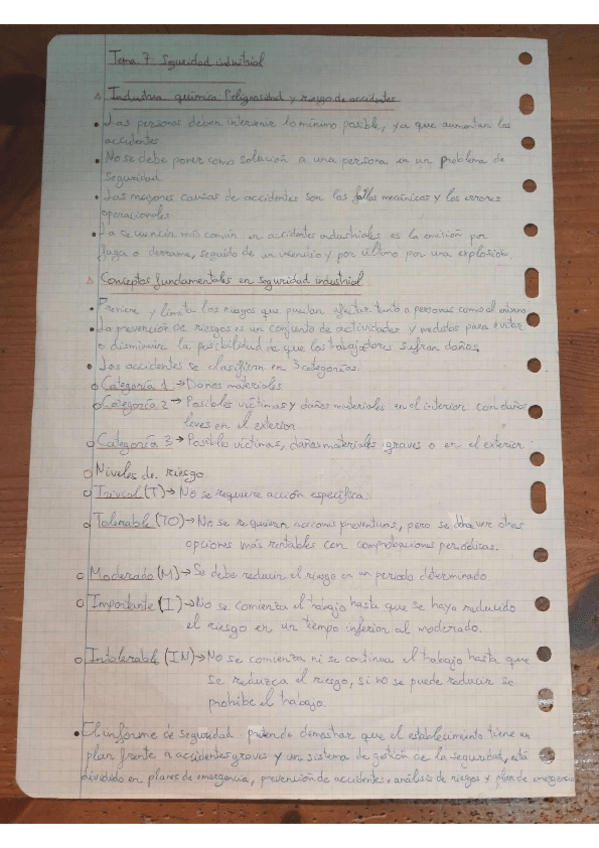 Tema 7 Seguridad industrial
Industria química: Peligrosidad y riesgo de accidentes
• Las personas deben intervenir lo mínimo posible, ya que aumentan los
accidentes
• No se debe poner como solución a una persona en un problema de
seguridad
• Las mayores causas de accidentes son los fallos mecánicos y los errores
operacionales
• La secuencia más común en accidentes industriales es la emisión por
fuga o derrame, seguido de un incendio y por último por una explosión.
Conceptos fundamentales en seguridad industrial
• Previene y limita los riesgos que puedan afectar tanto a personas como al entorno
• La prevención de riesgos es un conjunto de actividades y medidas para evitar
o disminuir la posibilidad de que los trabajadores sufran daños.
• Los accidentes se clasifican en 3 categorías.
o Categoría 1 → Daños materiales
o Categoría 2 → Posibles víctimas y daños materiales en el interior con daños
leves en el exterior
o Categoría 3 → Posibles víctimas, daños materiales graves o en el exterior
o Niveles de riesgo
o Trivial (T) → No se requiere acción específica
o Tolerable (TO) → No se requieren acciones preventivas, pero se debe ver otras
opciones más rentables con comprobaciones periódicas.
o Moderado (M) → Se debe reducir el riesgo en un periodo determinado
o Importante (I) → No se comienza el trabajo hasta que se haya reducido
el riesgo en un tiempo inferior al moderado.
o Intolerable (IN) → No se comienza ni se continua el trabajo hasta que
se reduzca el riesgo, si no se puede reducir se
prohibe el trabajo.
• El informe de seguridad pretende demostrar que el establecimiento tiene un
plan frente a accidentes graves y un sistema de gestión de la seguridad, está
dividido en planes de emergencia, prevención de accidentes, análisis de riesgos y plan de emergencia